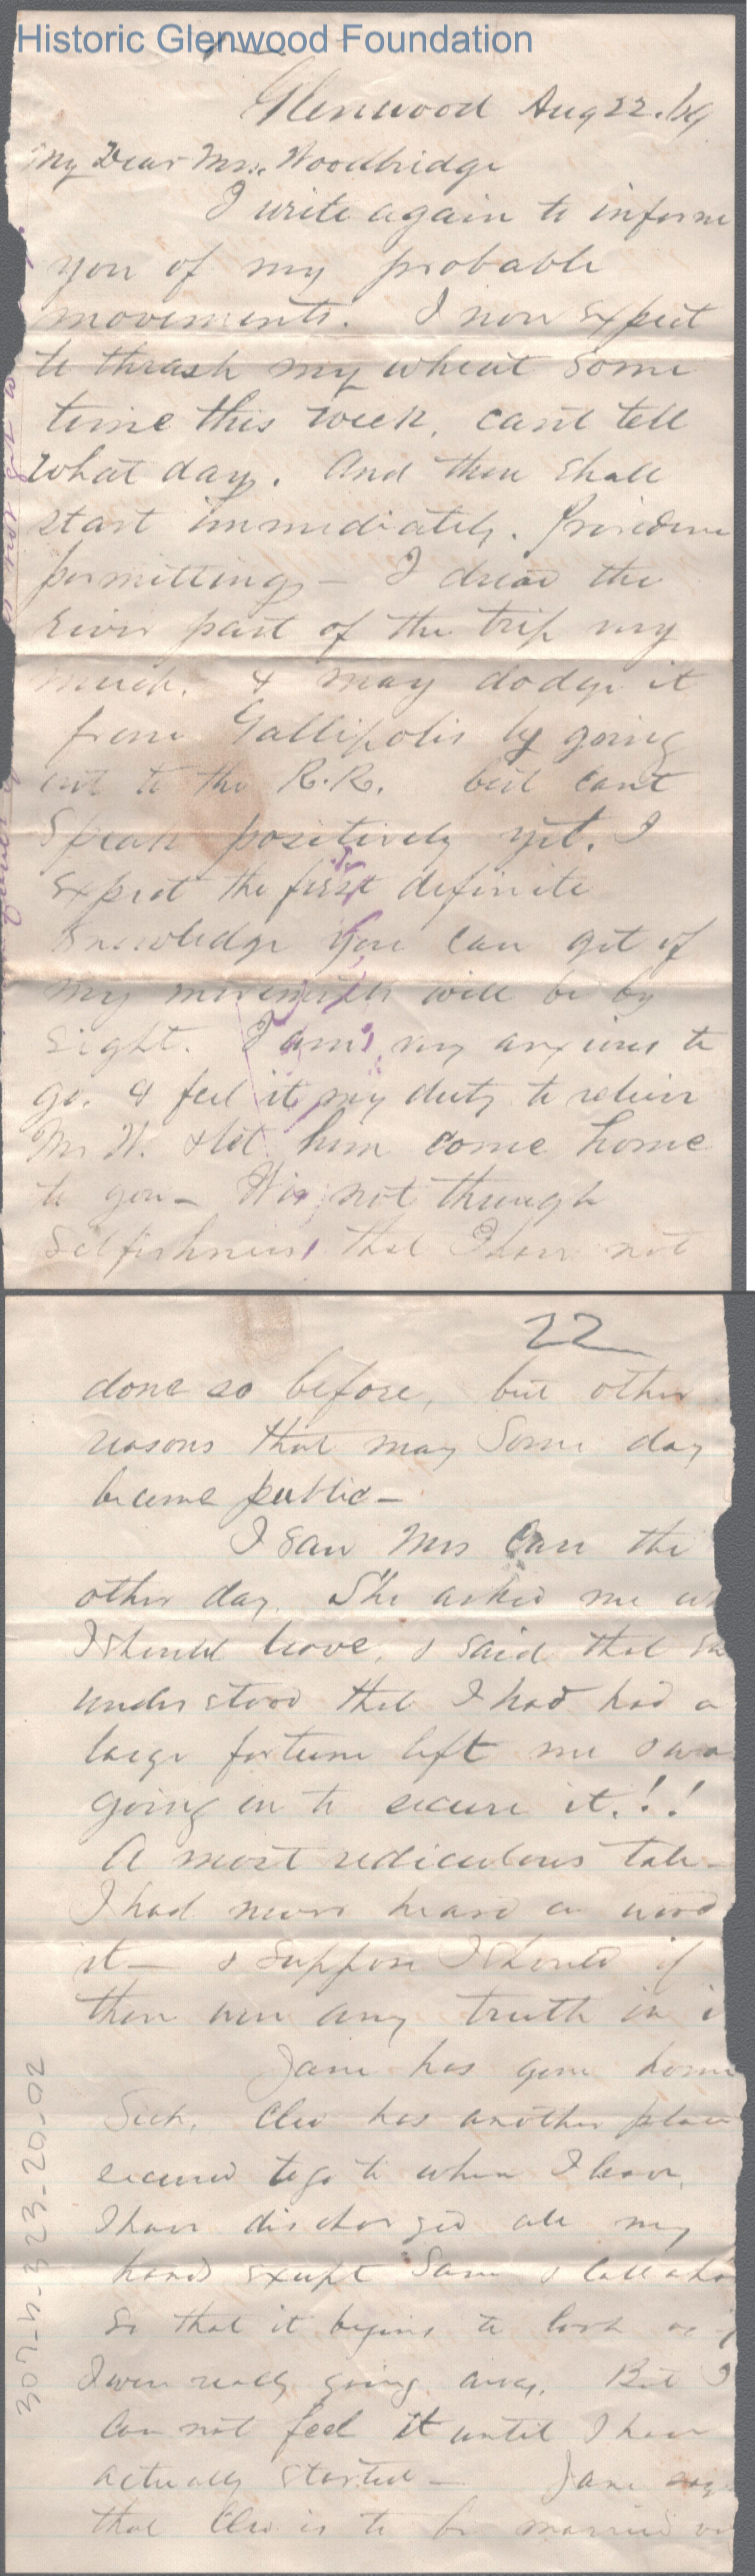 Historic Glenwood Foundation
Glenwood Aug 22. /89
My Dear Mrs. Woodbridge
I write again to inform
you of my probable
movements. I now expect
to thrash my wheat some
time this week, cant tell
what day. And then shall
start immediately. Providence
permitting - I dread the
river part of the trip very
much. & may dodge it
from Gallipolis by going
out to the R.R. but cant
speak positively yet. I
expect the first definite
knowledge you can get of
my movements will be by
sight. I am very anxious to
go. & feel it my duty to relieve
Mr W. & let him come home
to you - Tis not through
selfishness that I have not
22
done so before, but other
reasons that may some day
become public -
I saw Mrs Carr the
other day. She asked me
I should leave, & said that
understood that I had had a
large fortune left me & was
going on to secure it.!!
A most rediculous tale -
I had never heard a word
it - & suppose I should if
there was any truth in i
Jane has gone home
Sick. Cleo has another place
secured to go to when I leave.
I have discharged all my
hands except Sam &
So that it begins to look as i
I were really going away. But I
can not feel it until I have
actually started - Jane says
that Cleo is to be married
307-h-323-20-02